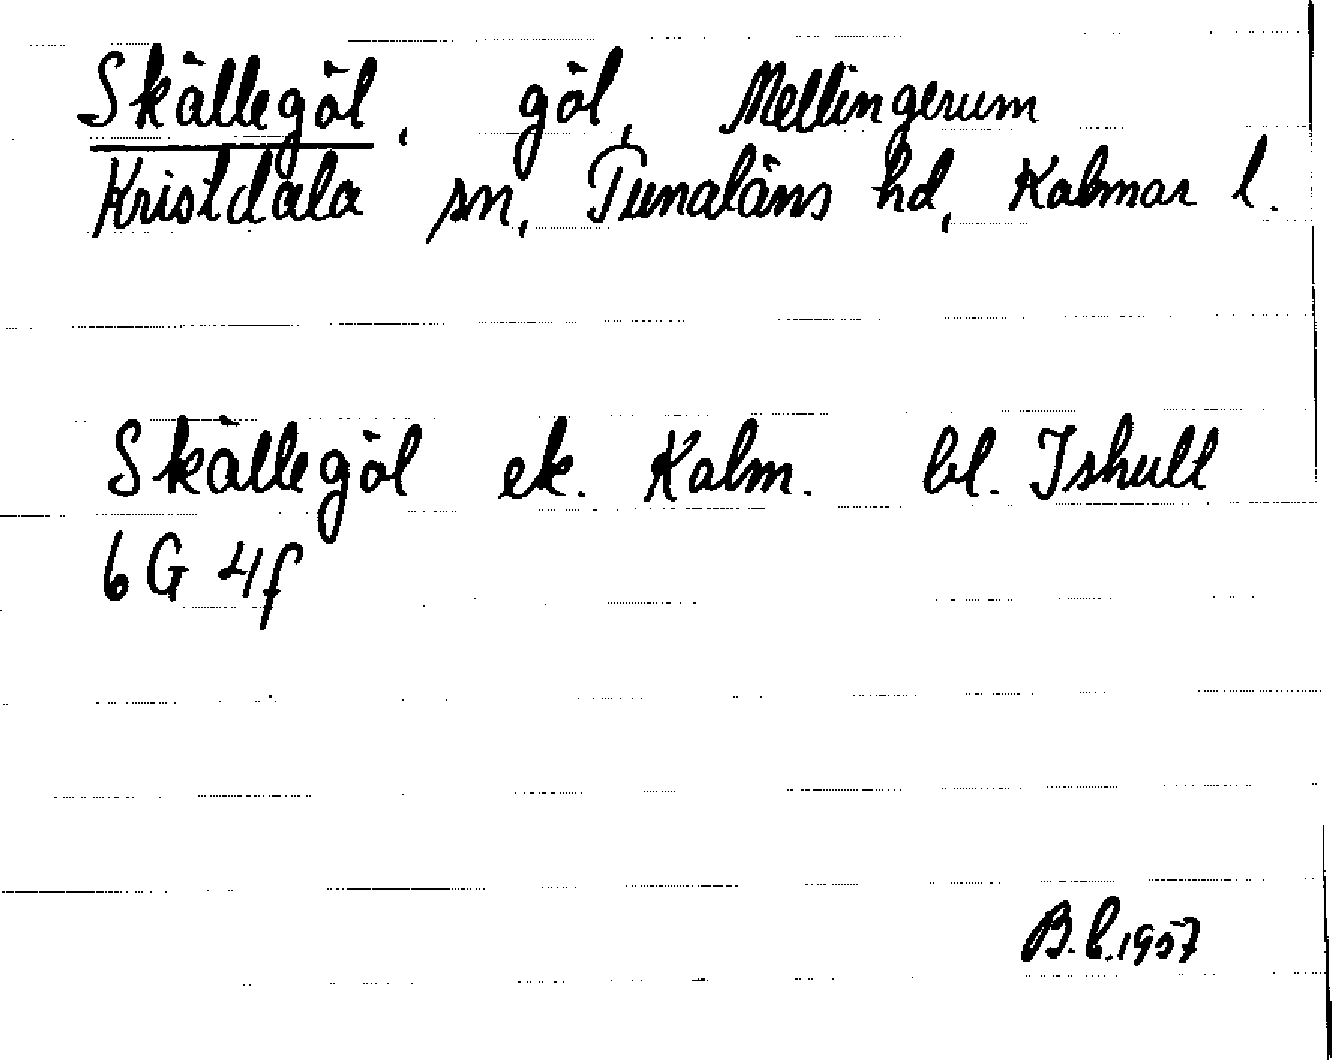 Skällegöl, göl, Mellingerum
Kristdala sn, Tunaläns hd, Kalmar l.
Skällegöl ek. Kalm. bl. Ishult
6G 4f
B.L.1957